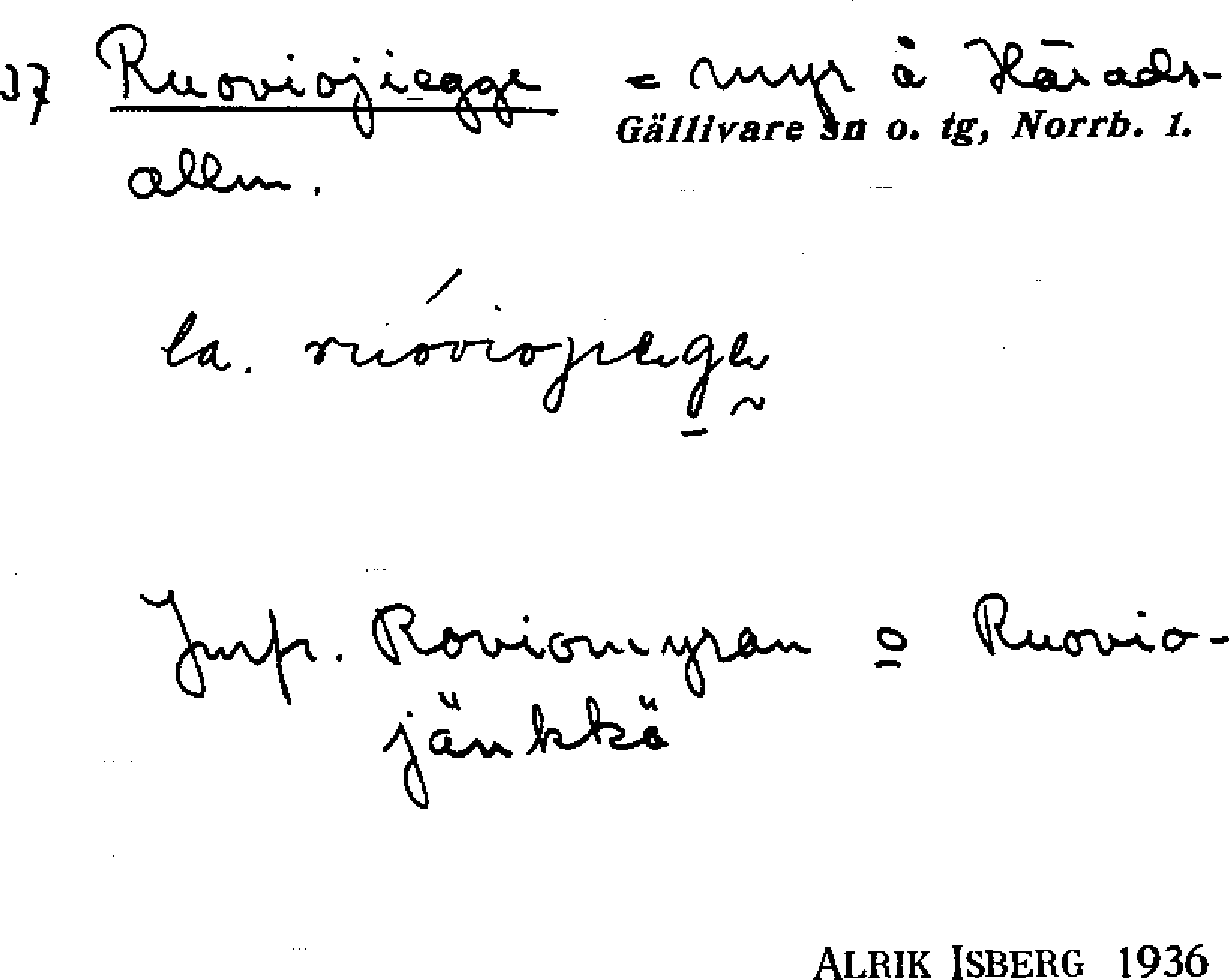 37 Ruoviojiegge = myr å Härads-
Gällivare sn o. tg, Norrb. l.
allm.
la. ruóviojiegge
Jmfr. Roviomyran o Ruovio-
jänkkä
ALRIK ISBERG 1936